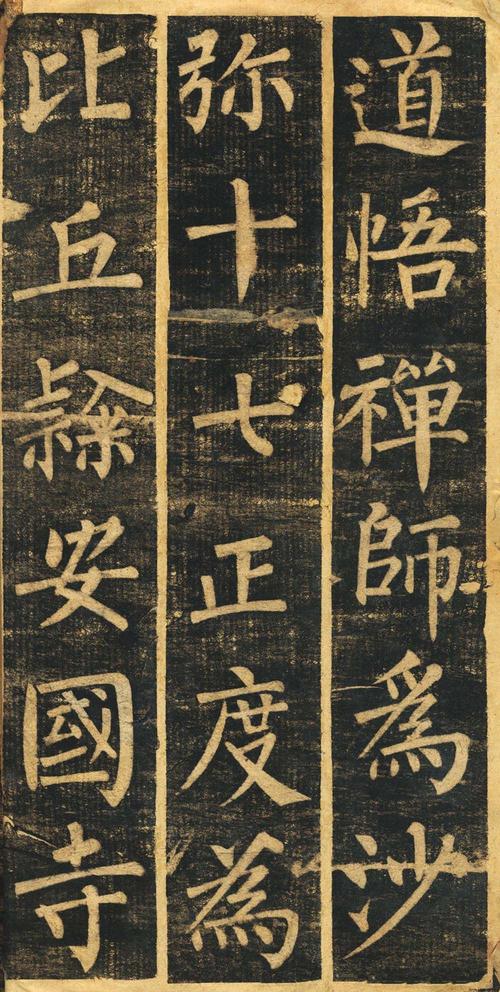 道悟禪師爲沙
弥十七正度為
比丘隸安國寺